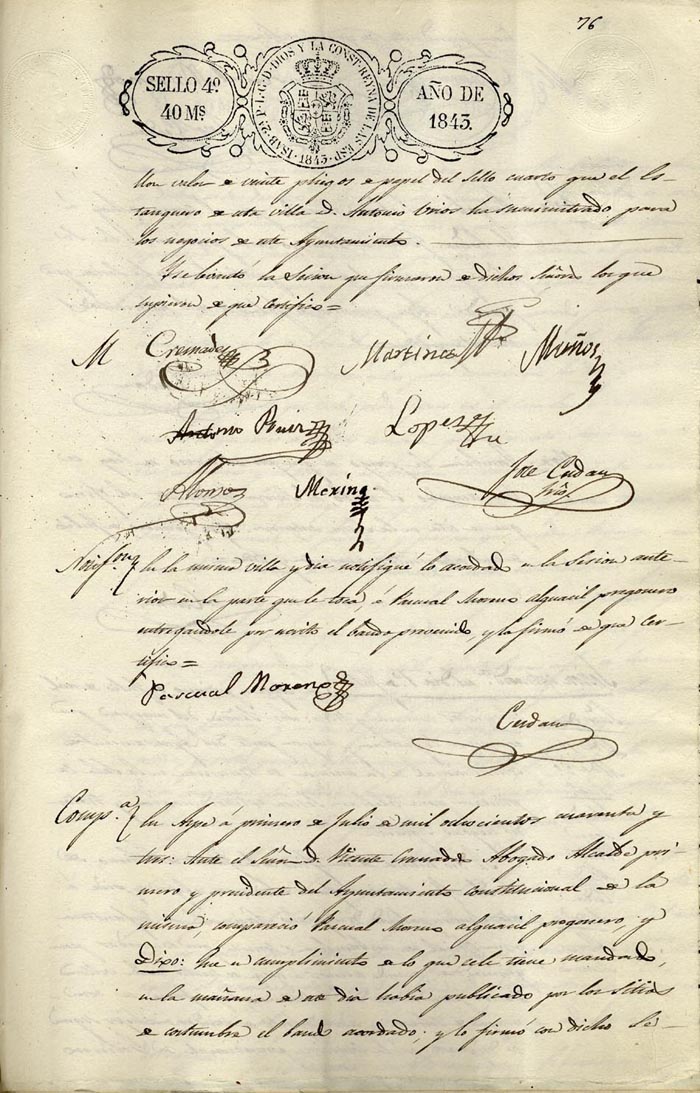 76
SELLO 4º
40 MS
ISAB. 2ª P. L. G. D. DIOS Y LA CONST. REYNA DE LAS ESP. 1843.
AÑO DE
1843.
valor de veinte pliegos de papel del sello cuarto que el Es-
tanquero de esta villa d. Antonio ha suministrado para
los negocios de este Ayuntamiento.
la Sesion que firmaron de dichos Señores los que
supieron de que certifico=
M Cremades Martinez Muños
Antonio Ruiz Lopez
Alonso Merino Jose Cerdan
Srio
Notif.on En la misma villa y dia notifiqué lo acordado en la Sesion ante-
rior en la parte que le toca, á Pascual Moreno alguacil pregonero
entregandole por escrito el bando prevenido, y lo firmó de que cer-
tifico=
Pascual Moreno
Cerdan
Comp.a En Aspe á primero de Julio de mil ochocientos cuarenta y
tres: Ante el Señor D. Vicente Cremades Abogado Alcalde pri-
mero y presidente del Ayuntamiento constitucional de la
misma, compareció Pascual Moreno alguacil pregonero, y
Dixo: Que en cumplimiento de lo que se le tiene mandado,
en la mañana de este dia habia publicado por los sitios
de costumbre el bando acordado; y lo firmó con dicho Se-